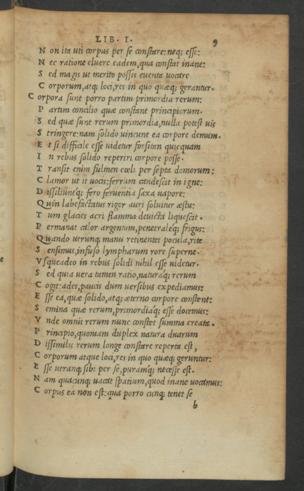 LIB. I. 9
N on ita uti corpus per se constare: neq; esse:
N ec ratione cluere eadem, qua constat inane:
S ed magis ut merito possis euenta uocare
C orporum, atq; loci, res in quo quæq; gerantur.
C orpora sunt porro partim primordia rerum:
P artim concilio quæ constant principiorum.
S ed quæ sunt rerum primordia, nulla potest uis
S tringere: nam solido uincunt ea corpore demum.
E t si difficile esse uidetur forsitan quicquam
I n rebus solido reperiri corpore posse.
T ransit enim fulmen cœli per septa domorum:
C lamor ut ii uoces: ferrum candescit in igne:
D issiliuntq; fero feruentia saxa uapore:
Q uin labefactatus rigor auri soluitur æstu:
T um glacies aeri flamma deuicta liquescit.
P ermanat calor argentum, penetraleq; frigus:
Q uando utrunq; manu retinentes pocula, rite
S ensimus, infuso lympharum rore superne.
V squeadeo in rebus solidi nihil esse uidetur.
S ed quia uera tamen ratio, naturaq; rerum
C ogit: ades, paucis dum uersibus expediamus:
E sse ea, quæ solido, atq; æterno corpore constent:
S emina quæ rerum, primordiaq; esse docemus:
V nde omnis rerum nunc constet summa creata.
P rincipio, quoniam duplex natura duarum
D issimilis rerum longe constare reperta est,
C orporum atque loci, res in quo quæq; geruntur:
E sse utranq; sibi per se, puramq; necesse est.
N am quacunq; uacat spatium, quod inane uocamus:
C orpus ea non est: qua porro cunq; tenet se
b